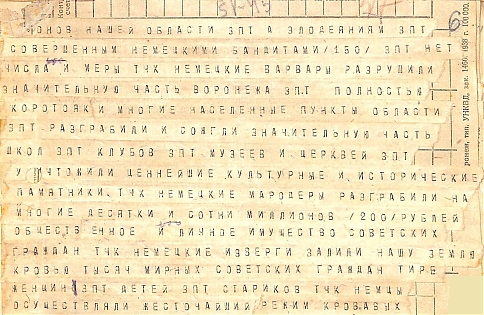 РАЙОНОВ НАШЕЙ ОБЛАСТИ ЗПТ А ЗЛОДЕЯНИЯМ ЗПТ
6
СОВЕРШЕННЫМ НЕМЕЦКИМИ БАНДИТАМИ /150/ ЗПТ НЕТ
ЧИСЛА И МЕРЫ ТЧК НЕМЕЦКИЕ ВАРВАРЫ РАЗРУШИЛИ
ЗНАЧИТЕЛЬНУЮ ЧАСТЬ ВОРОНЕЖА ЗПТ ПОЛНОСТЬЮ
КОРОТОЯК И МНОГИЕ НАСЕЛЕННЫЕ ПУНКТЫ ОБЛАСТИ
ЗПТ РАЗГРАБИЛИ И СОЖГЛИ ЗНАЧИТЕЛЬНУЮ ЧАСТЬ
ШКОЛ ЗПТ КЛУБОВ ЗПТ МУЗЕЕВ И ЦЕРКВЕЙ ЗПТ
УНИЧТОЖИЛИ ЦЕННЕЙШИЕ КУЛЬТУРНЫЕ И ИСТОРИЧЕСКИЕ
ПАМЯТНИКИ ТЧК НЕМЕЦКИЕ МАРОДЕРЫ РАЗГРАБИЛИ НА
МНОГИЕ ДЕСЯТКИ И СОТНИ МИЛЛИОНОВ /200/ РУБЛЕЙ
ОБЩЕСТВЕННОЕ И ЛИЧНОЕ ИМУЩЕСТВО СОВЕТСКИХ
ГРАЖДАН ТЧК НЕМЕЦКИЕ ИЗВЕРГИ ЗАЛИЛИ НАШУ ЗЕМЛЮ
КРОВЬЮ ТЫСЯЧ МИРНЫХ СОВЕТСКИХ ГРАЖДАН ТИРЕ
ЖЕНЩИН ЗПТ ДЕТЕЙ ЗПТ СТАРИКОВ ТЧК НЕМЦЫ
ОСУЩЕСТВЛЯЛИ ЖЕСТОЧАЙШИЙ РЕЖИМ КРОВАВЫХ
тип. УНКВД, зак. 1496, 1939 г. 100.000.